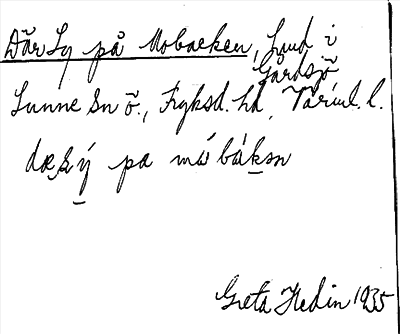 Där Ly på Mobacken, Lund i
Gårdsjö
Sunne sn ö., Fryksd. hd, Värml. l.
pa
Greta Hedin 1935